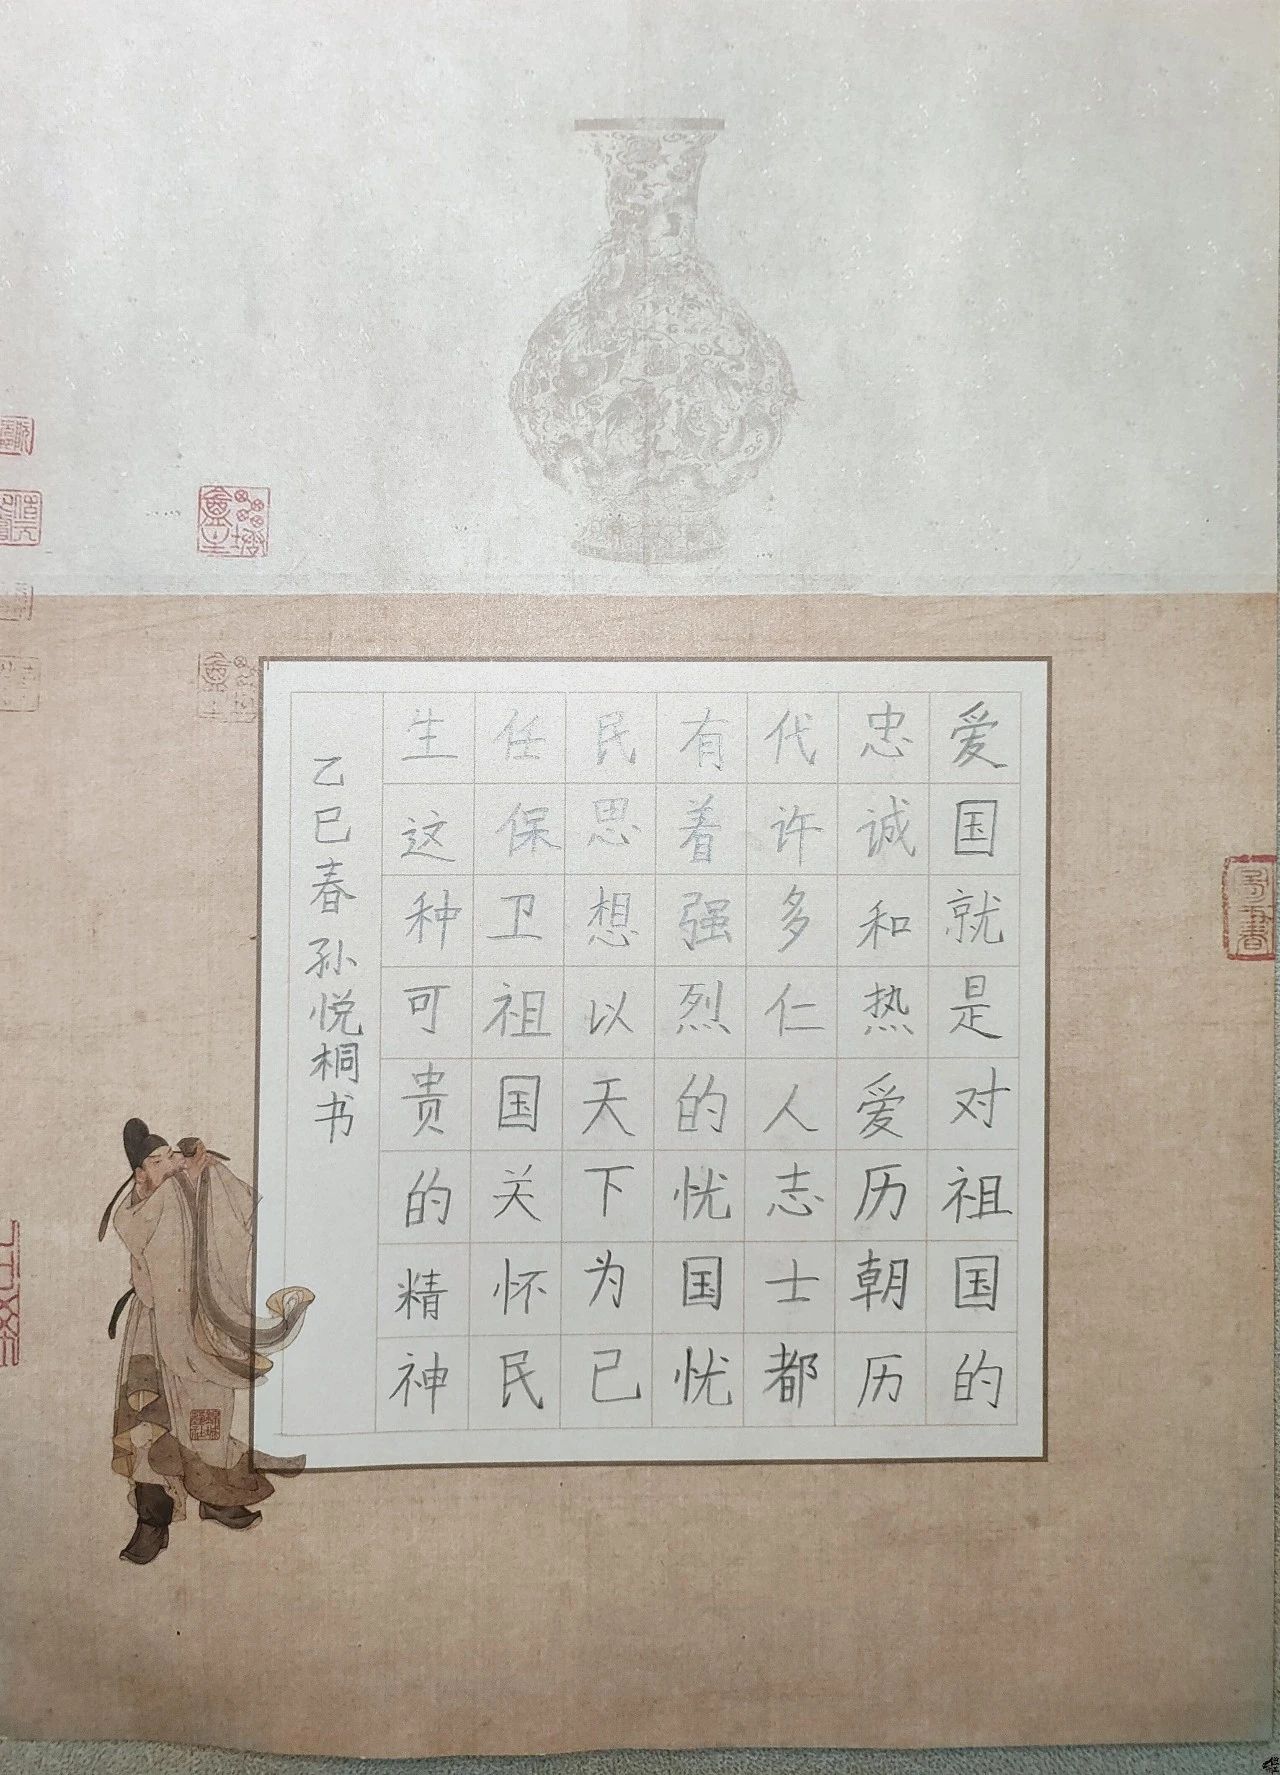 爱国就是对祖国的
忠诚和热爱历朝历
代许多仁人志士都
有着强烈的忧国忧
民思想以天下为己
任保卫祖国关怀民
生这种可贵的精神
乙巳春孙悦桐书